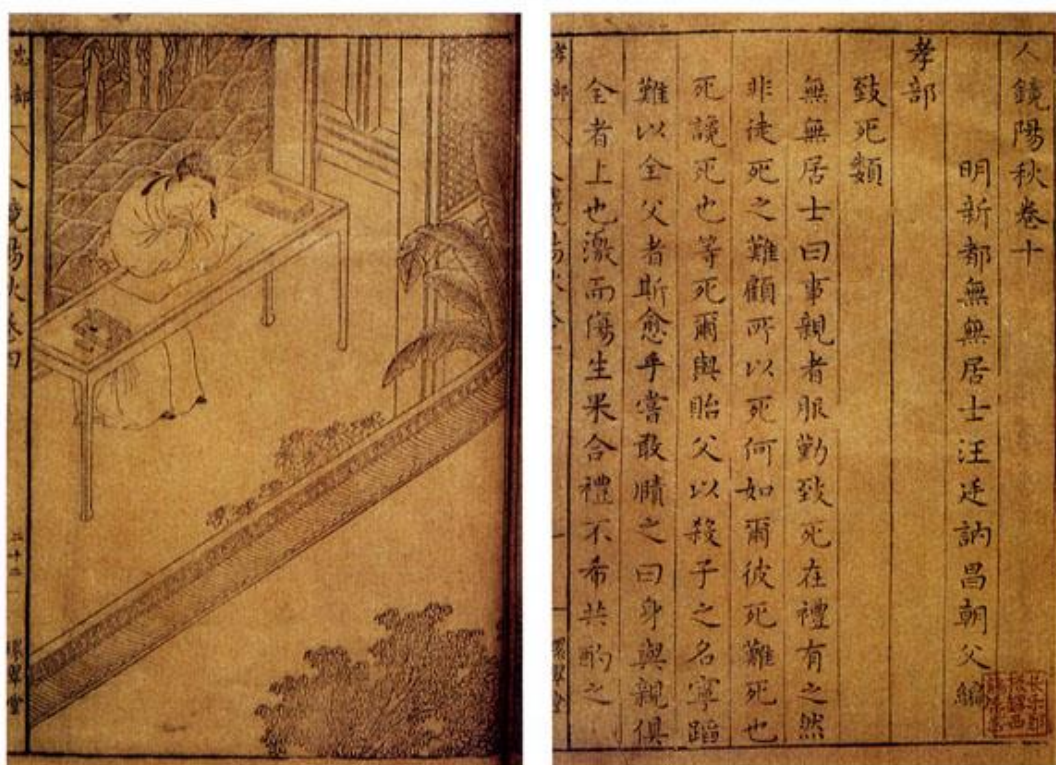 人鏡陽秋卷十
明新都無無居士汪廷訥昌朝父編
孝部
致死類
無無居士曰事親者服勤致死在禮有之然
非徒死之難顧所以死何如爾彼死難死也
死讒死也等死爾與貽父以殺子之名寧蹈
難以全父者斯愈乎嘗敢賾之曰身與親俱
全者上也激而傷生果合禮不希共酌之
孝部
忠部
人鏡陽秋 卷四
二十二
環翠堂